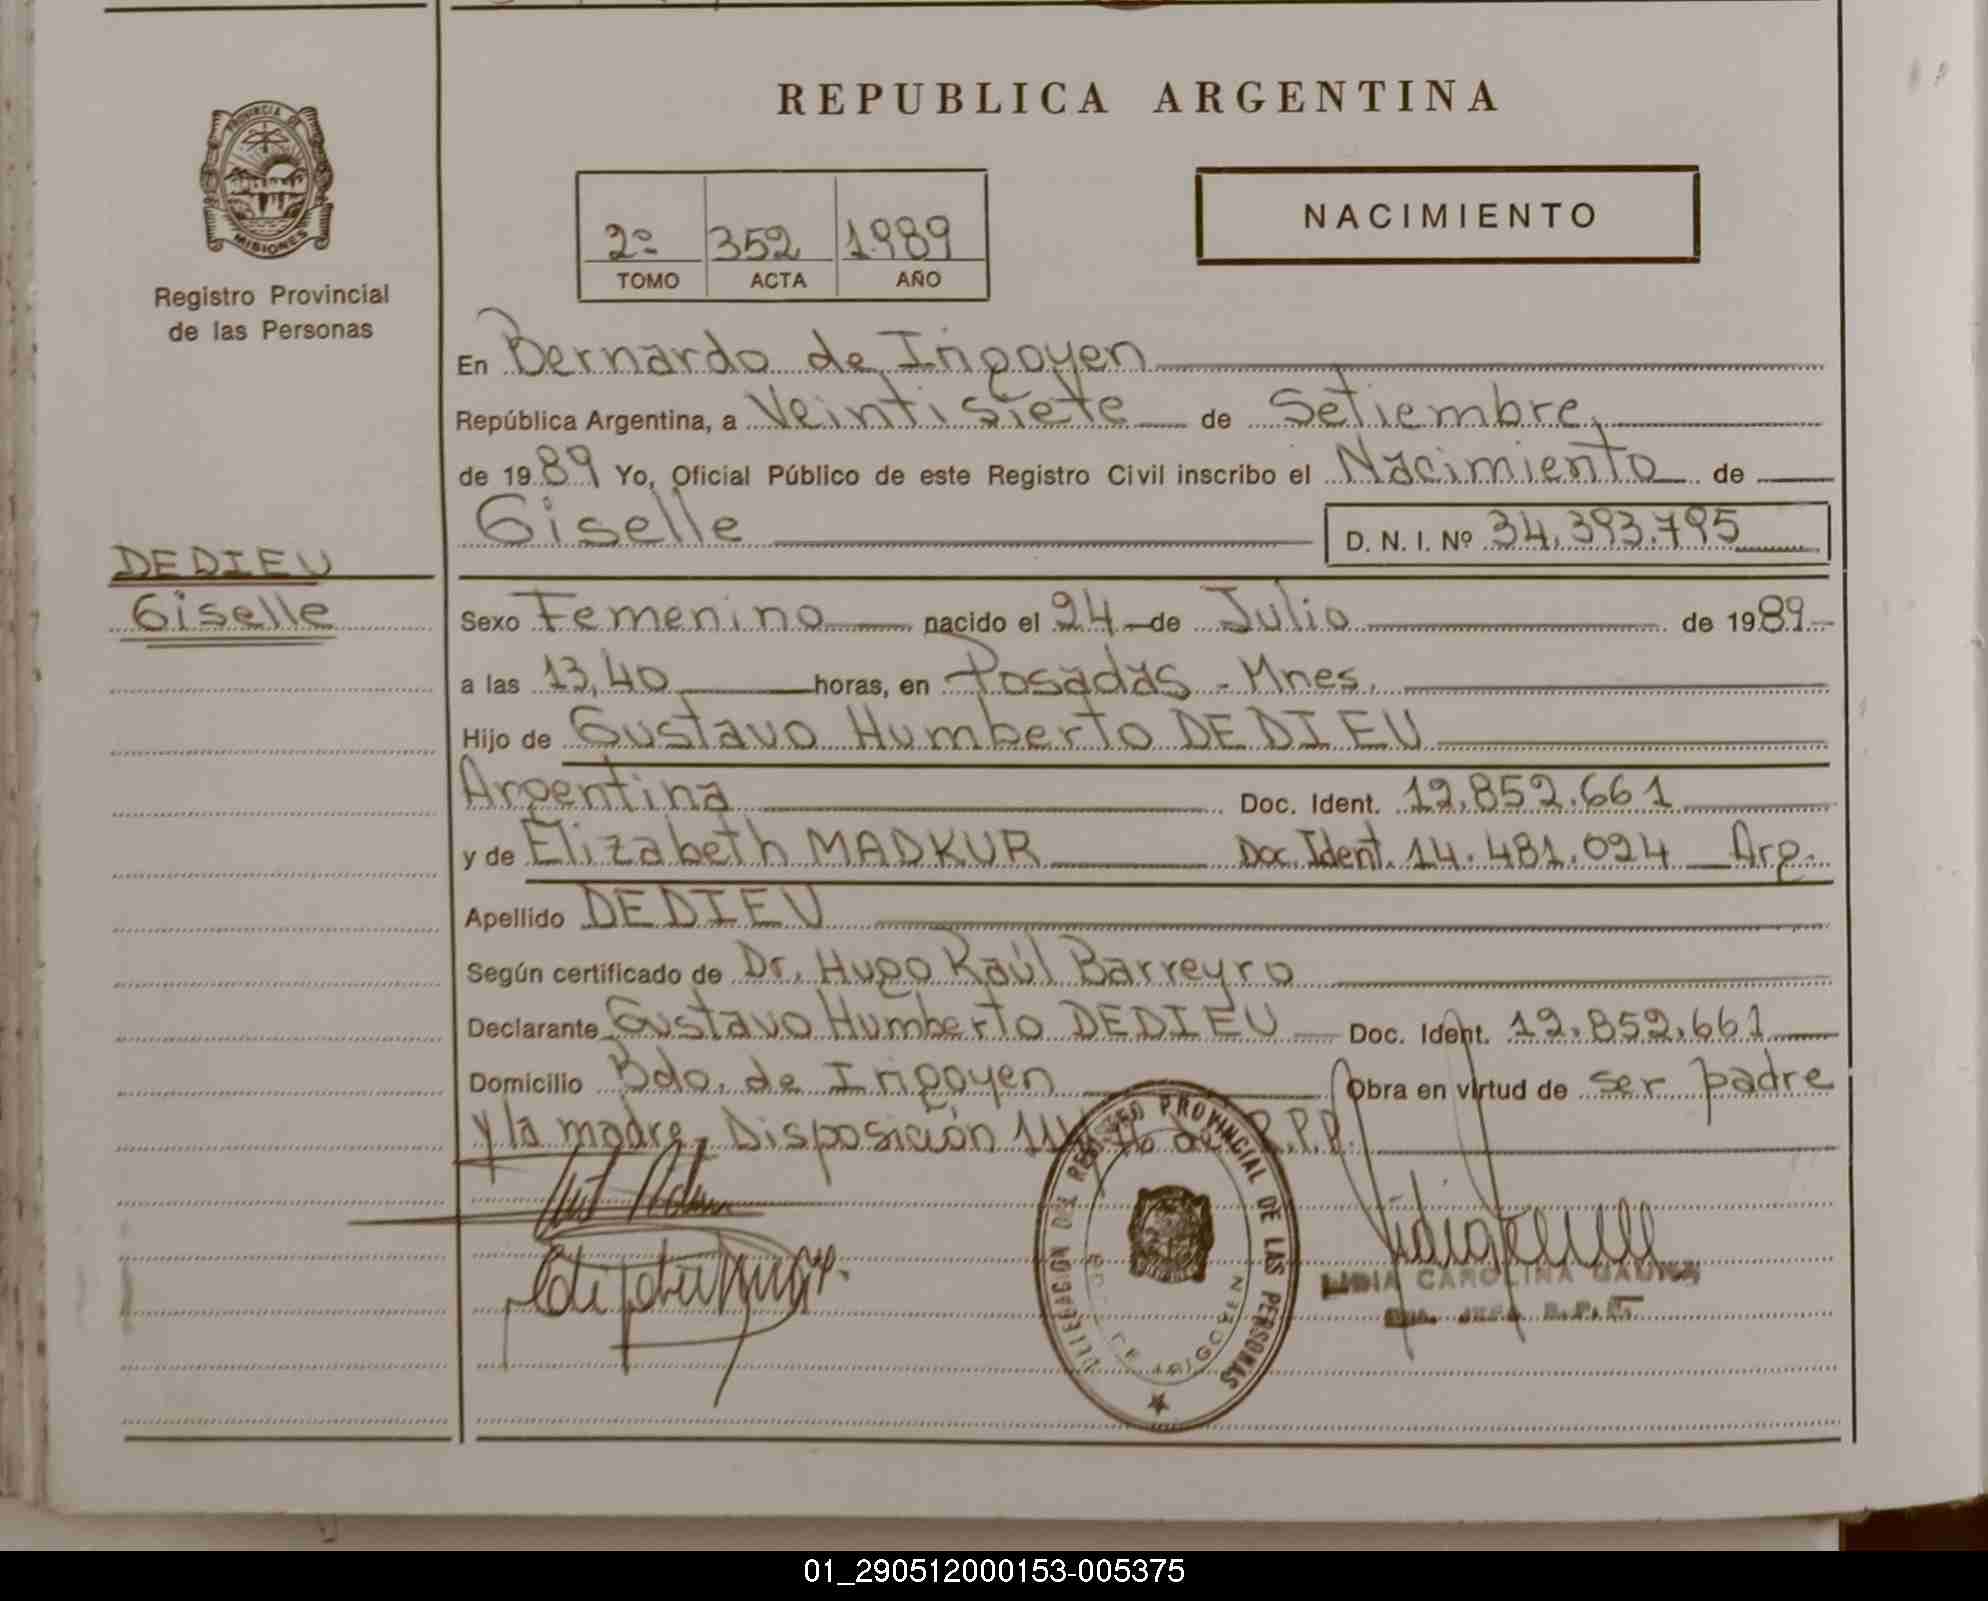 REPUBLICA ARGENTINA
PROVINCIA DE MISIONES
Registro Provincial
de las Personas
2º 352 1989
TOMO ACTA AÑO
NACIMIENTO
En Bernardo de Irigoyen
República Argentina, a Veintisiete de Setiembre,
de 1989 Yo, Oficial Público de este Registro Civil inscribo el Nacimiento de
Giselle D. N. I. Nº 34.393.795
DEDIEU
Giselle
Sexo Femenino nacido el 24 de Julio de 1989
a las 13,40 horas, en Posadas - Mnes.
Hijo de Gustavo Humberto DEDIEU
Argentina Doc. Ident. 12.852.661
y de Elizabeth MADKUR Doc. Ident. 14.481.024 Arg.
Apellido DEDIEU
Según certificado de Dr. Hugo Raúl Barreyro
Declarante Gustavo Humberto DEDIEU Doc. Ident. 12.852.661
Domicilio Bdo. de Irigoyen Obra en virtud de ser padre
y la madre, Disposición R.P.P.
DELEGACION DEL REGISTRO PROVINCIAL DE LAS PERSONAS
BDO. DE IRIGOYEN
LIDIA CAROLINA
JEFA R.P.P.
01_290512000153-005375